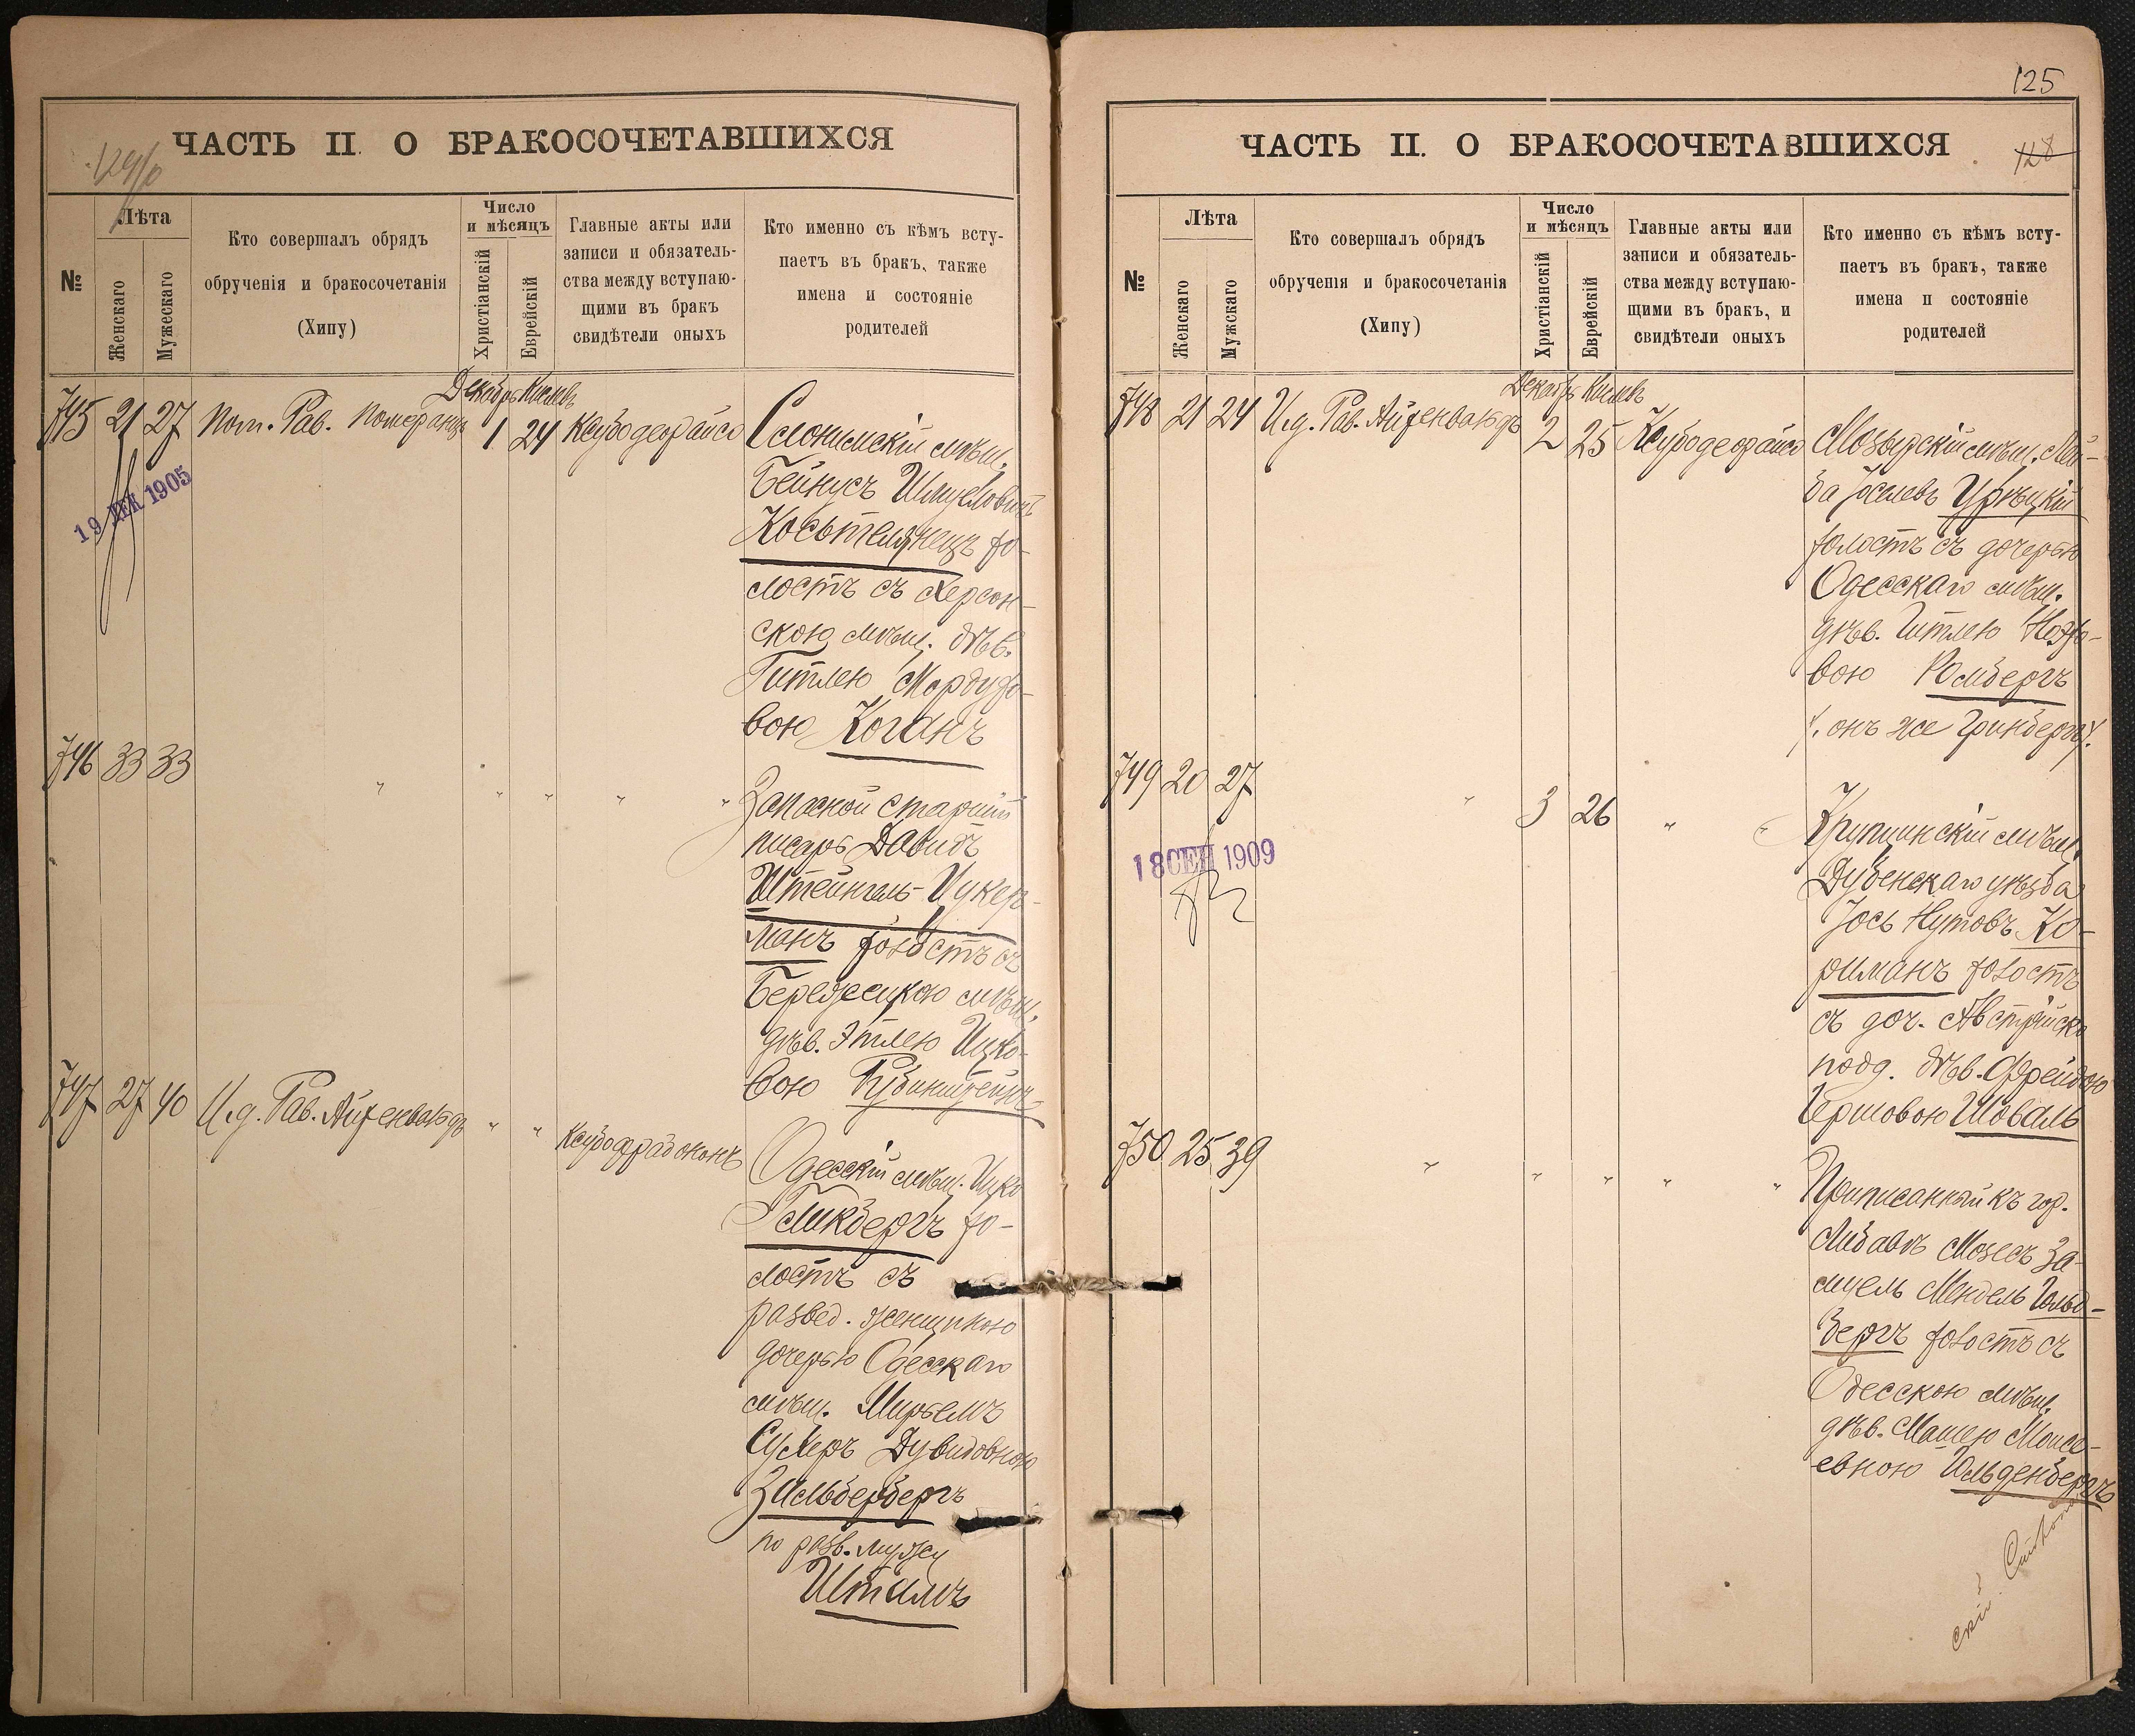 ЧАСТЬ II О БРАКОСОЧЕТАВШИХСЯ
№
Лѣта
Женскаго
Мужескаго
Кто совершалъ обрядъ
обрученія и бракосочетанія
(Хипу)
Число
и мѣсяцъ
Христіанскій
Еврейскій
Главные акты или
записи и обязатель-
ства между вступаю-
щими въ бракъ
свидѣтели оныхъ
Кто именно съ кѣмъ всту-
паетъ въ бракъ, также
имена и состояніе
родителей
Декабрь Кислевъ
745 21 27 Пом. Рав. Померанцъ 1 24
19 ДЕК 1905
Слонимскій мѣщ.
Бейнусъ Шмуеловичъ
Косьтелянецъ хо-
лостъ съ Херсон-
скою мѣщ. дѣв.
Гитлею Мордухо-
вою Коганъ
746 33 33 " " " " "
Запасной старшій
писарь Давидъ
Штейнгель-Цукер-
манъ холостъ съ
мѣщ.
дѣв. Этлею Ицко-
вою Рубинштейнъ
747 27 40 И.д. Рав. Айзенвальдъ " "
Одесскій мѣщ. Ицко
Гликбергъ хо-
лостъ съ
развед. женщиною
дочерью Одесскаго
мѣщ. Мирьемъ
Сухеръ Дувидовною
Зильбербергъ
по разв. мужу
Шталъ
125
ЧАСТЬ II. О БРАКОСОЧЕТАВШИХСЯ
128
№
Лѣта
Женскаго
Мужскаго
Кто совершалъ обрядъ
обрученія и бракосочетанія
(Хипу)
Число
и мѣсяцъ
Христіанскій
Еврейскій
Главные акты или
записи и обязатель-
ства между вступаю-
щими въ бракъ, и
свидѣтели оныхъ
Кто именно съ кѣмъ всту-
паетъ въ бракъ, также
имена и состояніе
родителей
Декабрь Кислевъ
748 21 24 И.д. Рав. Айзенвальдъ 2 25
Мозырскій мѣщ. Лей-
ба Іоселевъ Урѣцкій
холостъ съ дочерью
Одесскаго мѣщ.
дѣв. Гитлею
вою Ромбергъ
/. онъ же Гринбергъ/.
749 20 27 " 3 26 " "
18 СЕН 1909
мѣщ.
Дубенскаго уѣзда
Іось Нутовъ Ко-
риманъ холостъ
съ доч. Австрійск.
подд. дѣв. Фрейдою
Гершовою Шоваль
750 25 39 " " " " "
Приписанный къ гор.
Либавѣ Мозесъ За-
муель Мендель Гольд-
бергъ холостъ съ
Одесскою мѣщ.
дѣв. Машею Моисе-
евною Гольденбергъ